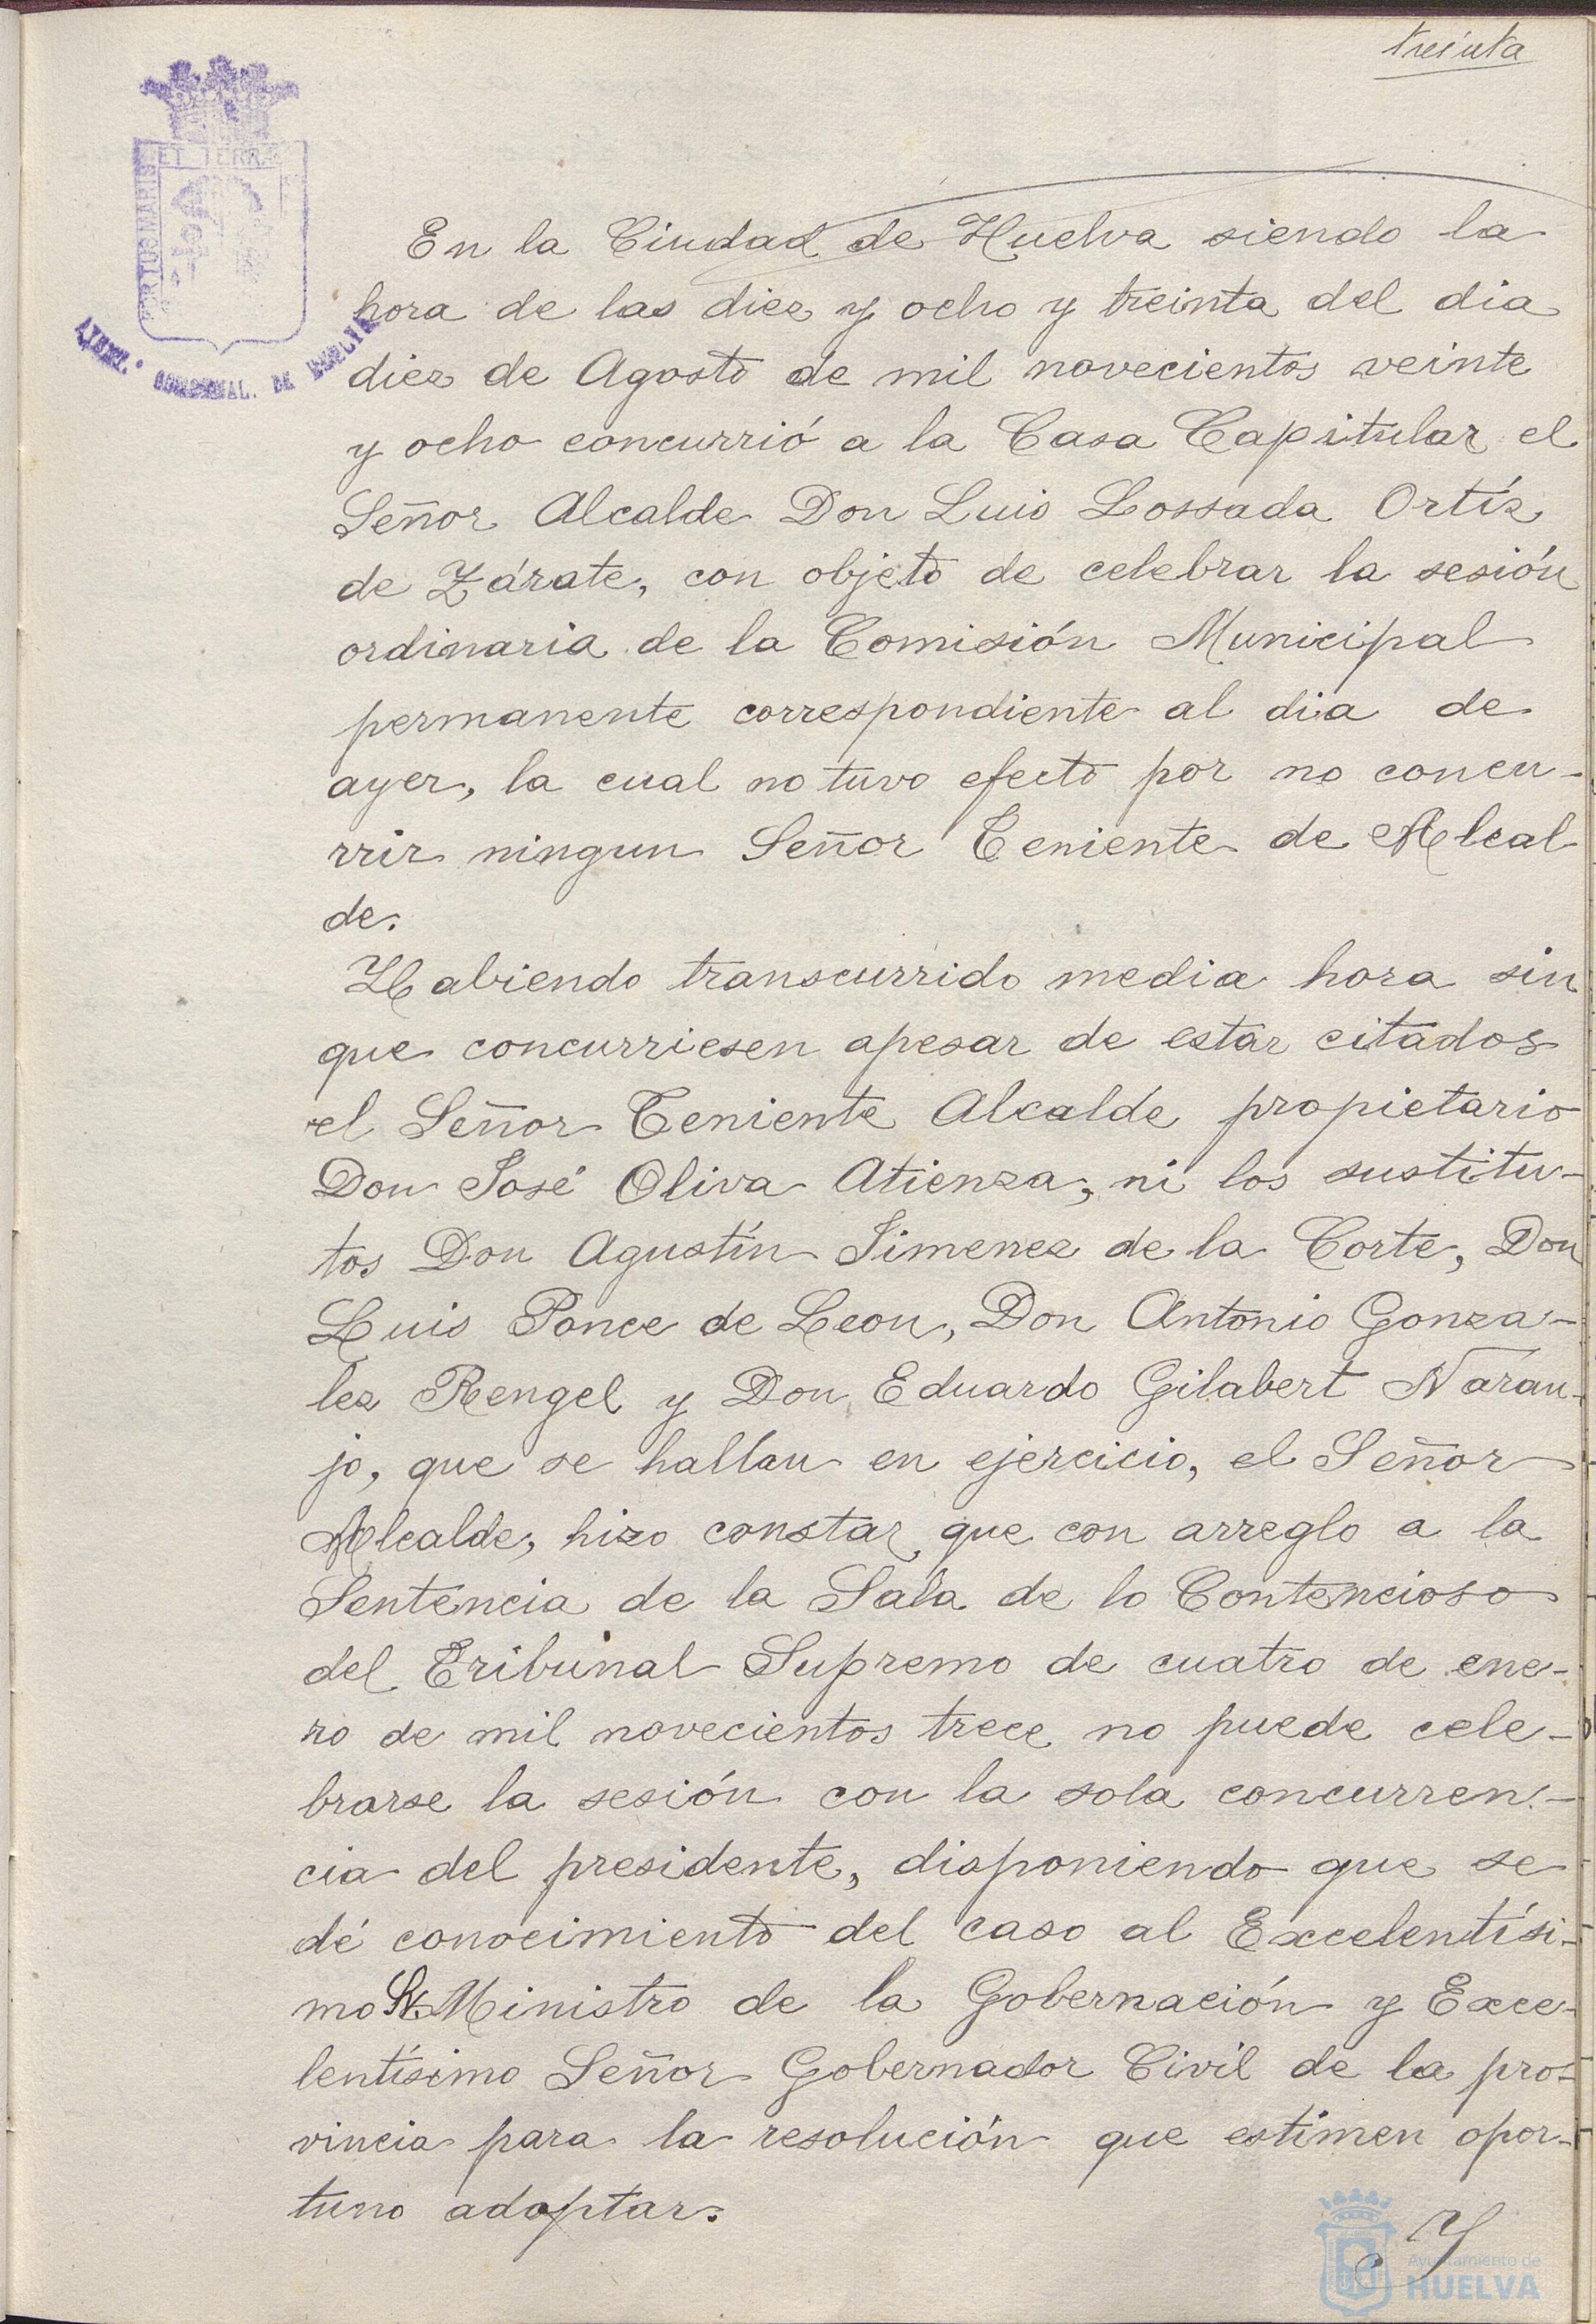 treinta
PORTUS MARIS
ET TERRÆ
DE HUELVA
En la Ciudad de Huelva siendo la
hora de las diez y ocho y treinta del dia
diez de Agosto de mil novecientos veinte
y ocho concurrió a la Casa Capitular el
Señor Alcalde Don Luis Lossada Ortíz
de Zárate, con objeto de celebrar la sesión
ordinaria de la Comisión Municipal
permanente correspondiente al dia de
ayer, la cual no tuvo efecto por no concu-
rrir ningun Señor Teniente de Alcal
de.
Habiendo transcurrido media hora sin
que concurriesen apesar de estar citados
el Señor Teniente Alcalde propietario
Don José Oliva Atienza, ni los sustitu-
tos Don Agustín Jimenez de la Corte, Don
Luis Ponce de Leon, Don Antonio Gonza-
lez Rengel y Don Eduardo Gilabert Naran-
jo, que se hallan en ejercicio, el Señor
Alcalde, hizo constar que con arreglo a la
Sentencia de la Sala de lo Contencioso
del Tribunal Supremo de cuatro de ene-
ro de mil novecientos trece no puede cele-
brarse la sesión con la sola concurren-
cia del presidente, disponiendo que se
dé conocimiento del caso al Excelentísi-
mo Sr. Ministro de la Gobernación y Exce-
lentísimo Señor Gobernador Civil de la pro-
vincia para la resolución que estimen opor-
tuno adoptar.
Y
Ayuntamiento de
HUELVA